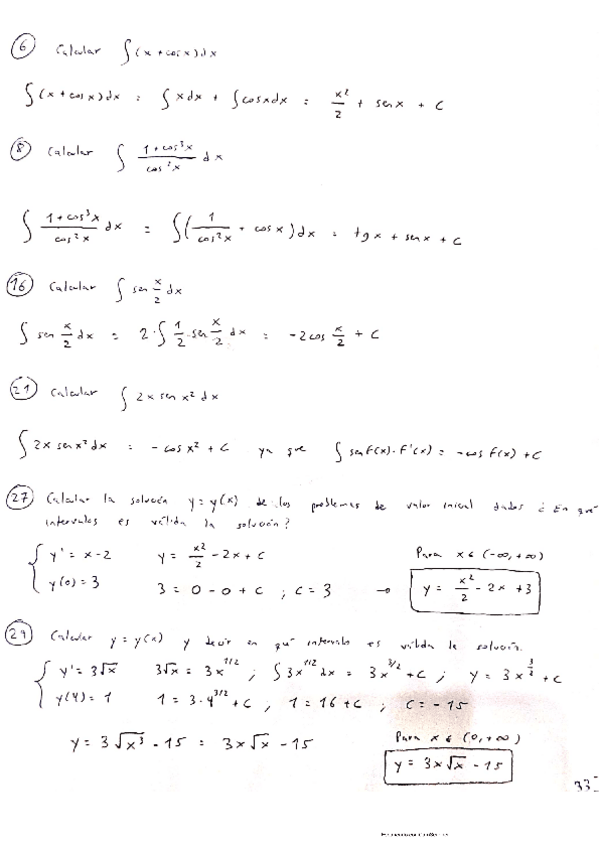 6 Calcular ∫(x + cosx)dx
∫(x + cosx)dx = ∫xdx + ∫cosxdx = x²/2 + senx + C
8 Calcular ∫ (1 + cos³x)/(cos²x) dx
∫ (1 + cos³x)/(cos²x) dx = ∫(1/(cos²x) + cosx)dx = tgx + senx + C
16 Calcular ∫ sen x/2 dx
∫ sen x/2 dx = 2·∫ 1/2·sen x/2 dx = -2cos x/2 + C
21 Calcular ∫ 2x sen x² dx
∫ 2x senx² dx = -cosx² + C ya que ∫ senf(x)·f'(x) = -cos f(x) + C
27 Calcular la solución y = y(x) de los problemas de valor inicial dados ¿En qué
intervalos es válida la solución?
y' = x - 2 y = x²/2 - 2x + C Para x ∈ (-∞, +∞)
y(0) = 3 3 = 0 - 0 + C ; C = 3 → y = x²/2 - 2x + 3
29 Calcular y = y(x) y decir en qué intervalo es válida la solución.
y' = 3√x 3√x = 3x^1/2 ; ∫3x^1/2 dx = 3x^3/2 + C ; y = 3x^3/2 + C
y(4) = 1 1 = 3·4^3/2 + C , 1 = 16 + C ; C = -15
y = 3√x³ - 15 = 3x√x - 15 Para x ∈ (0, +∞)
y = 3x√x - 15
33